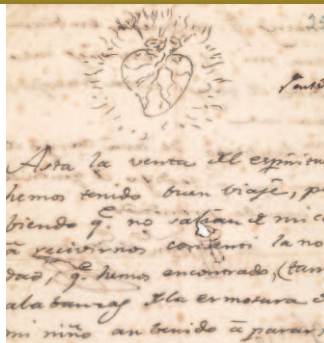 Asta la venta del espiritu
hemos tenido buen viaje, p
biendo q.e no sabian d mi c
a recivirnos
dad, q.e hemos encontrado, (tam
alabanzas d la ermosura d
mi niño an benido à parar,